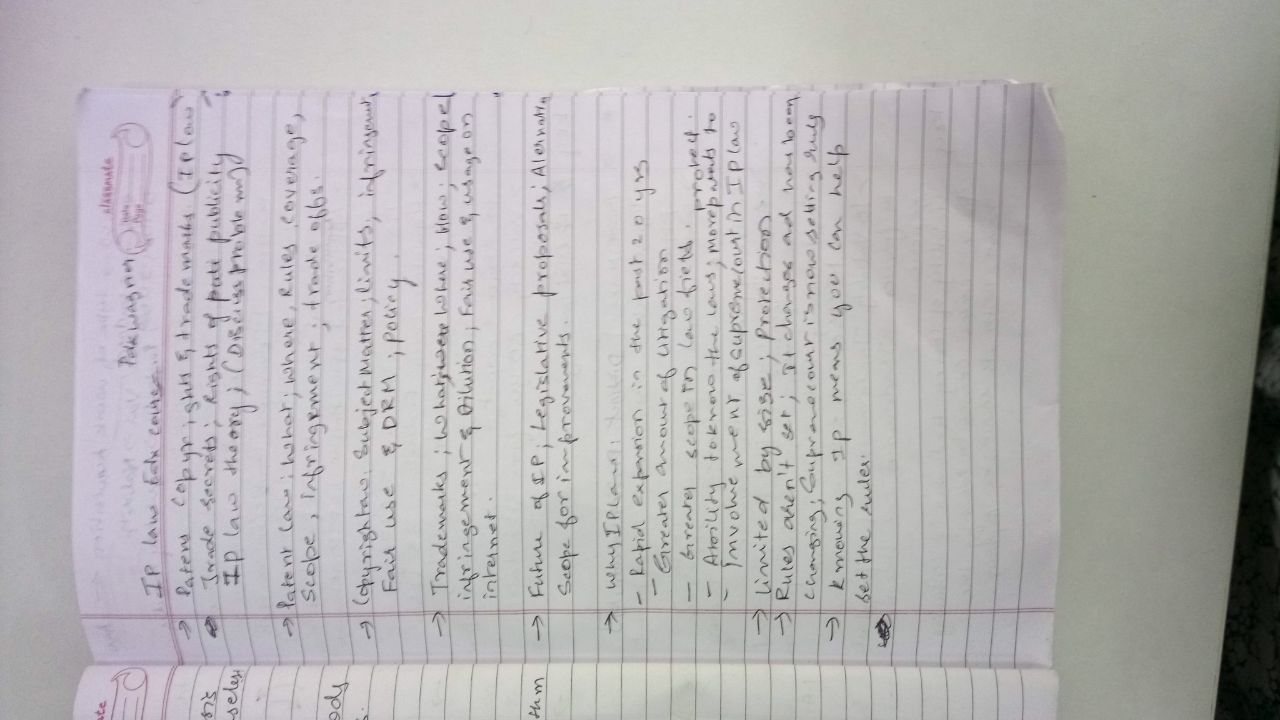 classmate
Date
Page
IP law Edx course
Polk Wagner
→ Patents copyrights & trademarks (IP law
Trade secrets; Rights of publicity
IP law theory; (Discuss problems)
→ Patent law: what; where, Rules, coverage,
Scope, infringement; trade offs.
→ Copyright law: Subject Matter, limits, infringement,
Fair use & DRM; policy.
→ Trademarks; What; where; How: scope
infringement & Dilution, Fair use & usage on
internet.
→ Future of IP; Legislative proposals; Alternativ
Scope for improvements.
→ Why IP Law:
- Rapid expansion in the past 20 yrs
- Greater amount of litigation
- Greater scope in law field.
- Ability to know the laws; more to
protect.
- Involvement of supreme court in IP law
→ Limited by size; Protection.
→ Rules aren't set; it changes and has been
changing; Supreme court is now setting rules
→ Knowing IP means you can help
set the rules.
sis
seless
ods
thm